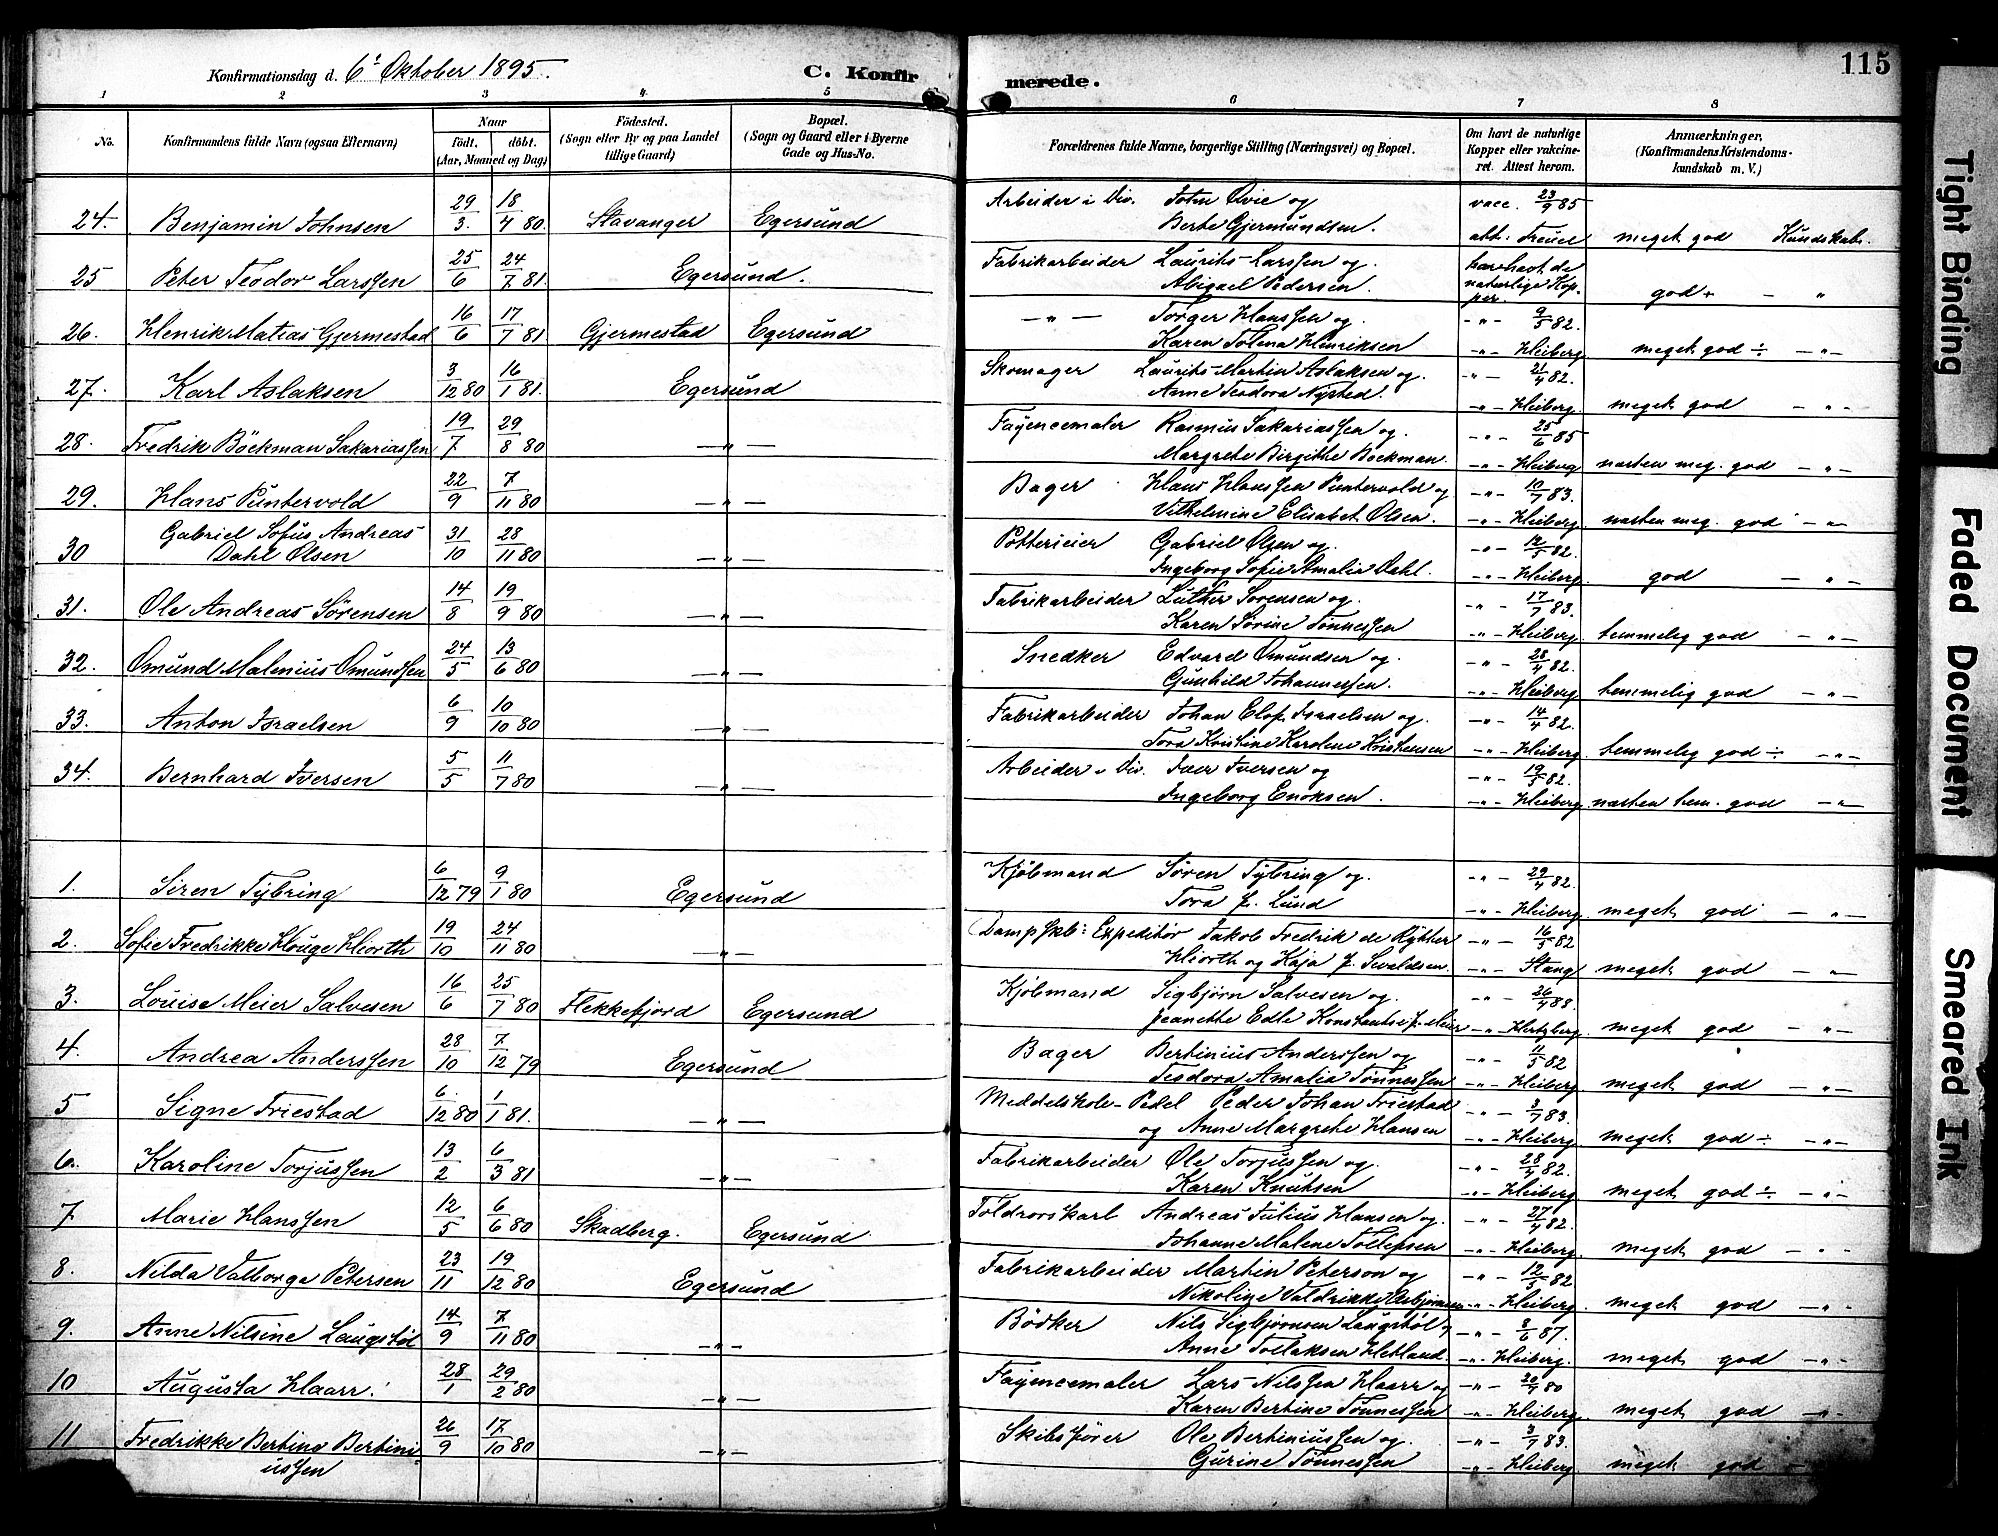 Konfirmationsdag d. 6te Oktober 1895. C. Konfir merede. 115
1 2 3 4 5 6 7 8
No. Konfirmandens fulde Navn (ogsaa Efternavn) Naar født. døbt. (Aar, Maaned og Dag) Fødested. (Sogn eller By og paa Landet tillige Gaard) Bopæl. (Sogn og Gaard eller i Byerne Gade og Hus-No. Forældrenes fulde Navne, borgerlige Stilling (Næringsvei) og Bopæl. Om havt de naturlige Kopper eller vakcineret. Attest herom. Anmærkninger, (Konfirmandens Kristendomskundskab m. V.)
24. Benjamin Johnsen 29/3 18/4 80 Stavanger Egersund Arbeider i Div. John Ovie og vacc. 23/9 85
Berte Gjermundsen. att: meget god Kundskab.
25 Peter Teodor Larssen 25/6 24/7 81. Egersund. Fabrikarbeider Laurits Larssen og har havt de
Abigael Pedersen. naturlige Kopper. god + — " 
26. Henrik Matias Gjermestad 16/6 17/7 81 Gjermestad Egersund —"— Torger Hanssen og —"— 9/5 82.
Karen Tolena Henriksen —"— Heiberg. meget god ÷ —"—
27. Karl Aslaksen 3/12 80 16/1 81. Egersund Skomager Laurits Martin Aslaksen og —"— 21/4 82.
Anne Teodora Nysted. —"— Heiberg. meget god —"—
28. Fredrik Böckman Sakariassen 19/7 29/8 80 —"— Fayencemaler Rasmus Sakariassen og —"— 25/6 85
Margrete Birgitte Böckman. —"— Heiberg næsten meg. god —"—
29. Hans Puntervold 22/9 7/11 80 —"— Bager Hans Hanssen Puntervold og —"— 10/7 83.
Vilhelmine Elisabet Olsen. —"— Heiberg. næsten meg. god —"—
30 Gabriel Sofus Andreas 31/10 28/11 80 —"— Pottericier Gabriel Olsen og —"— 12/5 82.
Dahl Olsen Ingeborg Sofie Amalia Dahl. —"— Heiberg. god —"—
31. Ole Andreas Sörensen 14/8 19/9 80 —"— Fabrikarbeider Luther Sörensen og —"— 17/7 83.
Karen Sörine Tönnessen —"— Heiberg. temmelig god —"—
32. Omund Malenius Omundsen 24/5 13/6 80 —"— Snedker Edvard Omundsen og —"— 28/4 82.
Gunhild Johannessen. —"— Heiberg temmelig god —"—
33. Anton Israelsen 6/9 10/10 80 —"— Fabrikarbeider Johan Olof Israelsen og —"— 14/4 82.
Tora Kristine Karolene Kristensen —"— Heiberg. temmelig god ÷ —"—
34. Bernhard Iversen 5/5 11/7 80 —"— Arbeider i Div. Iver Iversen og —"— 19/5 82.
Ingeborg Enoksen. —"— Heiberg. næsten tem. god —"—
1. Siren Tybring 6/12 79 9/1 80 Egersund Kjöbmand Sören Tybring og —"— 29/4 82.
Tora f. Lund —"— Heiberg. meget god —"—
2. Sofie Fredrikke Houge Hiorth 19/10 24/11 80 —"— Dampskb: Expeditör Jakob Fredrik de Rytter —"— 16/5 82
Hiorth og Kaja f. Sivaldsen. —"— Stang meget god —"—
3. Louise Meier Salvesen 16/6 25/7 80 Flekkefjord Egersund Kjöbmand Sigbjörn Salvesen og —"— 26/4 88
Jeanette Edle Konstantse f. Meier —"— Hertzberg. meget god —"—
4. Andrea Anderssen 28/10 7/12 79 Egersund Bager Bertinius Anderssen og —"— 11/5 82
Teodora Amalia Tönnessen —"— Heiberg. meget god —"—
5 Signe Friestad 6/12 80 1/1 81. —"— Middelskole-Pedel Peder Johan Friestad —"— 3/7 83.
og Anne Margrete Hansen —"— Heiberg. meget god ÷ —"—
6. Karoline Torjussen 13/2 6/3 81 —"— Fabrikarbeider Ole Torjussen og —"— 28/4 82.
Karen Knutsen —"— Heiberg meget god ÷ —"—
7 Marie Hanssen 12/5 6/6 80 Skadberg. Egersund Toldrorskarl Andreas Julius Hansen og —"— 27/4 82.
Johanne Malene Tollefsen —"— Heiberg. meget god —"—
8. Nilda Valborga Petersen 23/11 19/12 80 Egersund Fabrikarbeider Martin Peterson og —"— 12/5 82
Nikoline Valdrikke —"— Heiberg. meget god —"—
9. Anne Nilsine Laugstöl 14/9 7/11 80 —"— Bödker Nils Sigbjörnsen Laugstöl og —"— 3/6 87.
Anne Tollaksen Hetland. —"— Heiberg. meget god —"—
10 Augusta Haarr. 28/1 29/2 80 —"— Fayencemaler Lars Nilssen Haarr og —"— 20/9 80
Karen Bertine Tönnessen —"— Heiberg. meget god —"—
11 Fredrikke Bertine Bertini- 26/9 17/10 80 —"— Skibsförer Ole Bertiniussen og —"— 3/7 83.
ussen Gurine Tönnessen —"— Heiberg meget god
Tight Binding
Faded Document
Smeared Ink